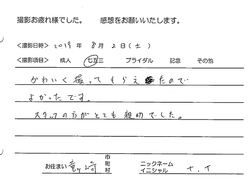 撮影お疲れ様でした。 感想をお願いいたします。
<撮影日時> 2018年 8月 2日(土)
<撮影項目> 成人 七五三 ブライダル 記念 その他
かわいく撮ってもらえたので
よかったです。
スタッフの方がとても親切でした。
お住まい 市町村 ニックネーム イニシャル